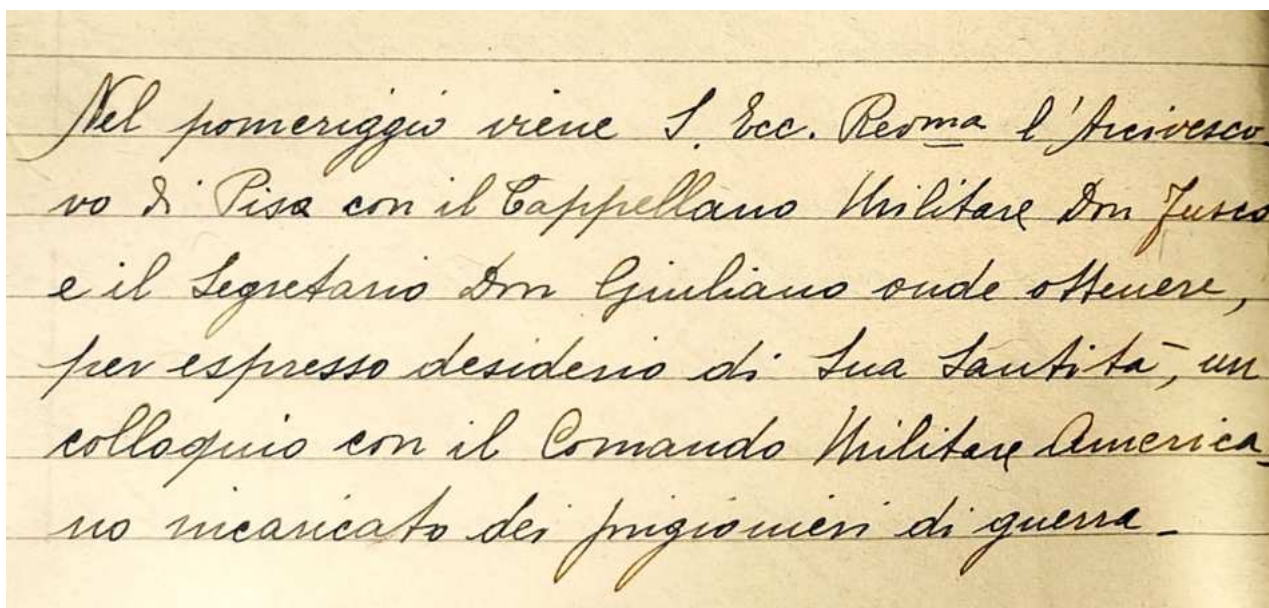 Nel pomeriggio viene S. Ecc. Revma l'Arcivesco-
vo di Pisa con il Cappellano Militare Don Fusco
e il Segretario Don Giuliano onde ottenere,
per espresso desiderio di Sua Santità, un
colloquio con il Comando Militare America-
no incaricato dei prigionieri di guerra -